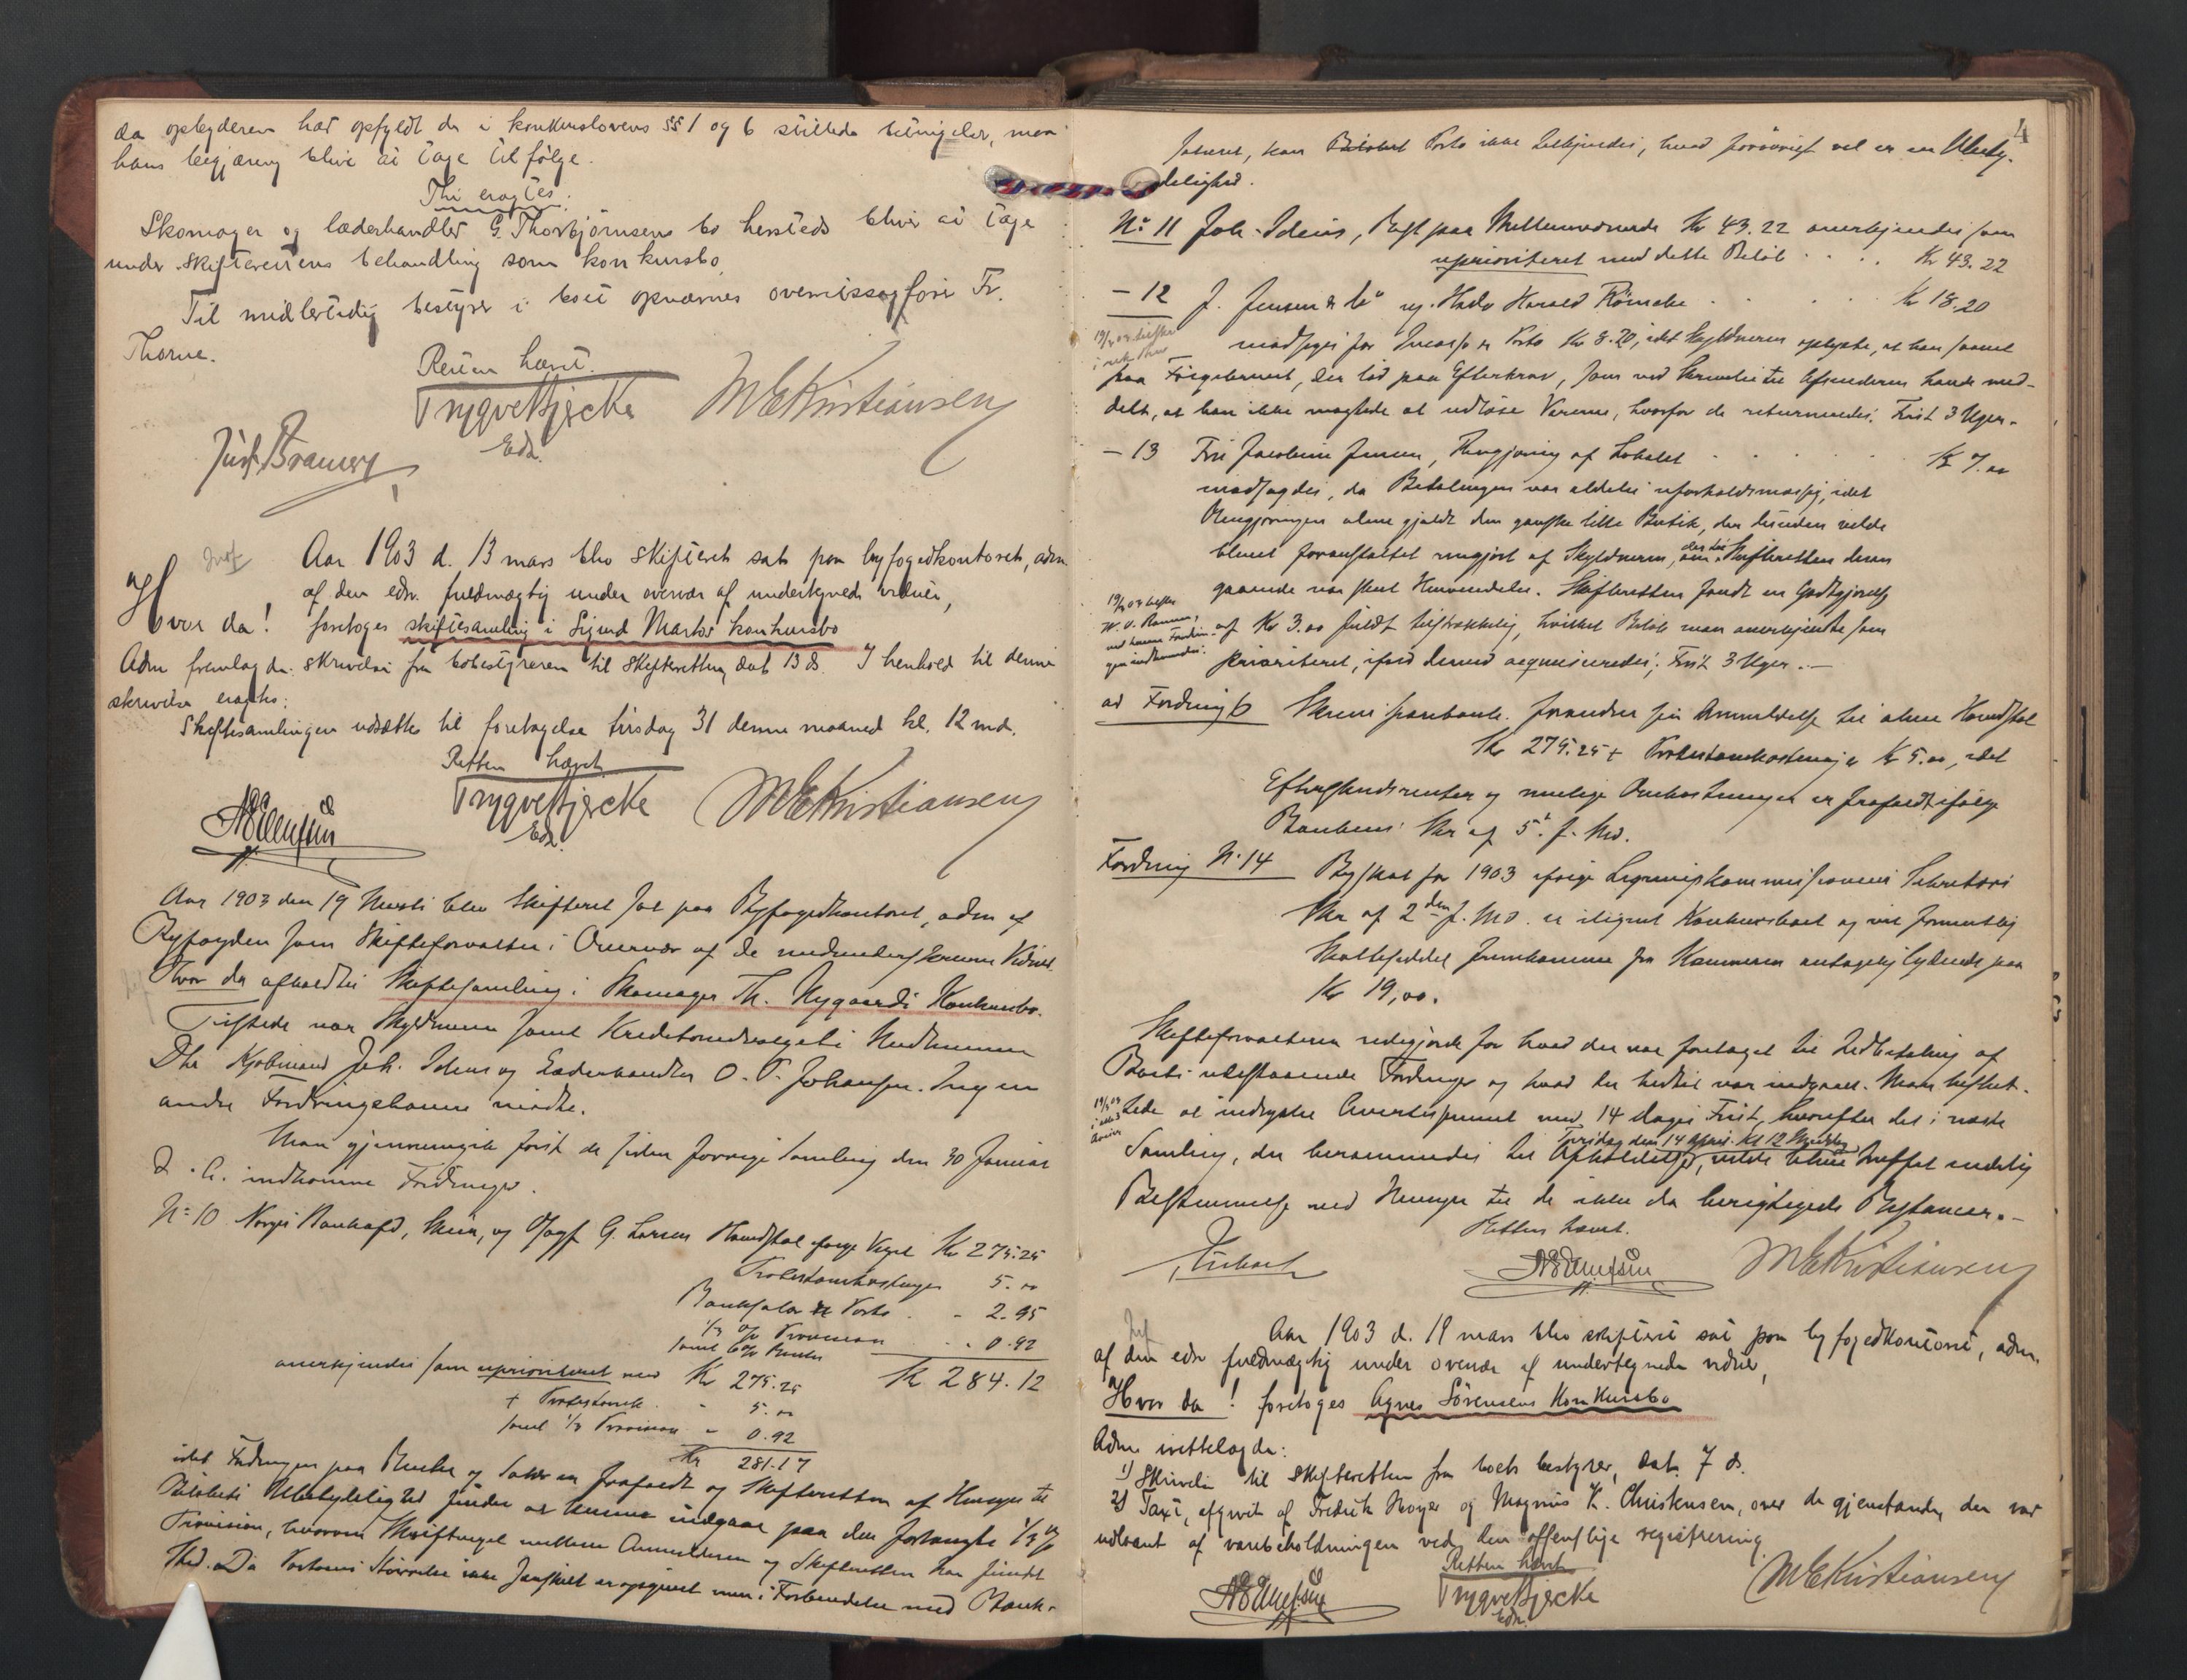 da opbyderen har opfyldt de i konkurslovens §§ 1 og 6 stillede betingelser, maa
hans begjæring blive at tage til følge.
Thi eragtes:
Skomager og læderhandler G. Thorbjørnsens bo hersteds bliver at tage
under skifterettens behandling som konkursbo.
Til midlertidig bestyrer i boet opnævnes overretssagfører Fr.
Thorne.
Retten hævet.
Trygve Bjercke
Edsv.
M E Kristiansen
Aar 1903 d. 13 mars blev skifteret sat paa byfogedkontoret, adm.
af den edsv. fuldmægtig under overvær af undertegnede vidner,
Hvor da! foretoges skiftesamling i Sigurd Martos konkursbo
Adm fremlagde skrivelse fra bobestyreren til skifteretten, dat 13 ds. I henhold til denne
skrivelse eragtes:
Skiftesamlingen udsættes til foretagelse tirsdag 31 denne maaned kl. 12 md.
Retten hævet
Trygve Bjercke
Edsv.
M E Kristiansen
Aar 1903 den 19 Marts blev Skifteret sat paa Byfogedkontoret, adm af
Byfogden som Skifteforvalter i Overvær af de medunderskrevne Vidner.
Hvor da afholdtes Skiftesamling i Skomager Th. Nygaards Konkursbo.
Tilstede var Skyldneren samt Kreditorudvalgets Medlemmer
Dhr Kjøbmand Joh. Idens og Læderhandler O. T. Johansen. Ingen
andre Fordringshavere mødte.
Man gjennemgik først de siden forrige Samling den 30 Januar
d. A. indkomne Fordringer.
No 10 Norges Bankafd, Skien, og Osagf G. Larsen Hovedstol ifølge Vexel Kr 275.25
Protestomkostninger 5.00
Banksalær & Porto - 2.95
1/3 % Provision - 0.92
samt 6% Renter
Kr 284.12
anerkjendes som uprioriteret med Kr 275.25
+ Protestomk. - 5.00
samt 1/3 Provision - 0.92
Kr 281.17
idet Fordringen paa Renter og Salær er frafaldt og Skifteretten af Hensyn til
Beløbets Ubetydelighed finder at kunne indgaa paa den forlangte 1/3 %
Provision, hvorom Skriftvexel mellem Anmelderen og Skifteretten har fundet
Sted. Da Portoens Størrelse ikke særskilt er opgivet men i Forbindelse med Bank-
4
salæret, kan Beløbet Porto ikke tilkjendes, hvad forøvrigt vel er en Ubety-
delighed.
No 11 Joh. Idens, Rest paa Mellemværende Kr 43.22 anerkjendes som
uprioriteret med dette Beløb . . . . Kr 43.22
- 12 J. Jensen & Co v. Hadv Harald Rømcke . . . Kr 18.20
modsiges for Incasso & Porto Kr 3.20, idet Skyldneren oplyste, at han saavel
paa Følgebrevet, der lød paa Efterkrav, som ved Skrivelse til Afsenderen havde med-
delt, at han ikke magtede at udløse Varerne, hvorfor de returneredes. Frist 3 Uger.
- 13 Fru Jacobine Jensen, Rengjøring af Lokalet . . . Kr 7.00
modsagdes, da Betalingen var aldeles uforholdsmæssig, idet
Rengjøringen alene gjaldt den ganske lille Butik, der desuden vilde
blevet foranstaltet rengjort af Skyldneren, om der til Skifteretten derom
gaaende var skeet Henvendelse. Skifteretten fandt en Godtgjørelse
af Kr 3.00 fuldt tilstrækkelig, hvilket Beløb man anerkjendte som
prioriteret, ifald dermed acquiesceredes; Frist 3 Uger.-
ad Fordring 6 Skiens Sparebank forandrer sin Anmeldelse til alene Hovedstol
Kr 275.25 + Protestomkostninger Kr 5.00, idet
Efterskudsrenter og mulige Omkostninger er frafaldt ifølge
Bankens Skr af 5te f. Md.
Fordring No 14 Byskat for 1903 ifølge Ligningskommissionens Sekretærs
Skr af 2den f. Md. er ilignet Konkursboet og vil formentlig
Skatteseddel fremkomme fra Kæmneren antagelig lydende paa
Kr 19,00.
Skifteforvalteren redegjorde for hvad der var foretaget til Indbetaling af
Boets udestaaende Fordringer og hvad der hidtil var indgaaet. Man beslut-
tede at indrykke Avertissement med 14 Dages Frist, hvorefter det i næste
Samling, der berammedes til Afholdelse Tirsdag den 14 April Kl 12 Middag, vilde blive truffet endelig
Bestemmelse med Hensyn til de ikke da berigtigede Restancer.-
Retten hævet.
M E Kristiansen
Aar 1903 d. 19 mars blev skifteret sat paa byfogedkontoret, adm.
af den edsv fuldmægtig under overvær af undertegnede vidner,
Hvor da! foretoges Agnes Sörensens Konkursbo
Adm irettelagde:
1) Skrivelse til skifteretten fra boets bestyrer, dat. 7 ds.
2) Taxt, afgivet af Fredrik Høyer og Magnus K. Christensen, over de gjenstande, der var
udtaat af varebeholdningen ved den offentlige registrering.
Retten hævet
Trygve Bjercke
Edsv.
M E Kristiansen